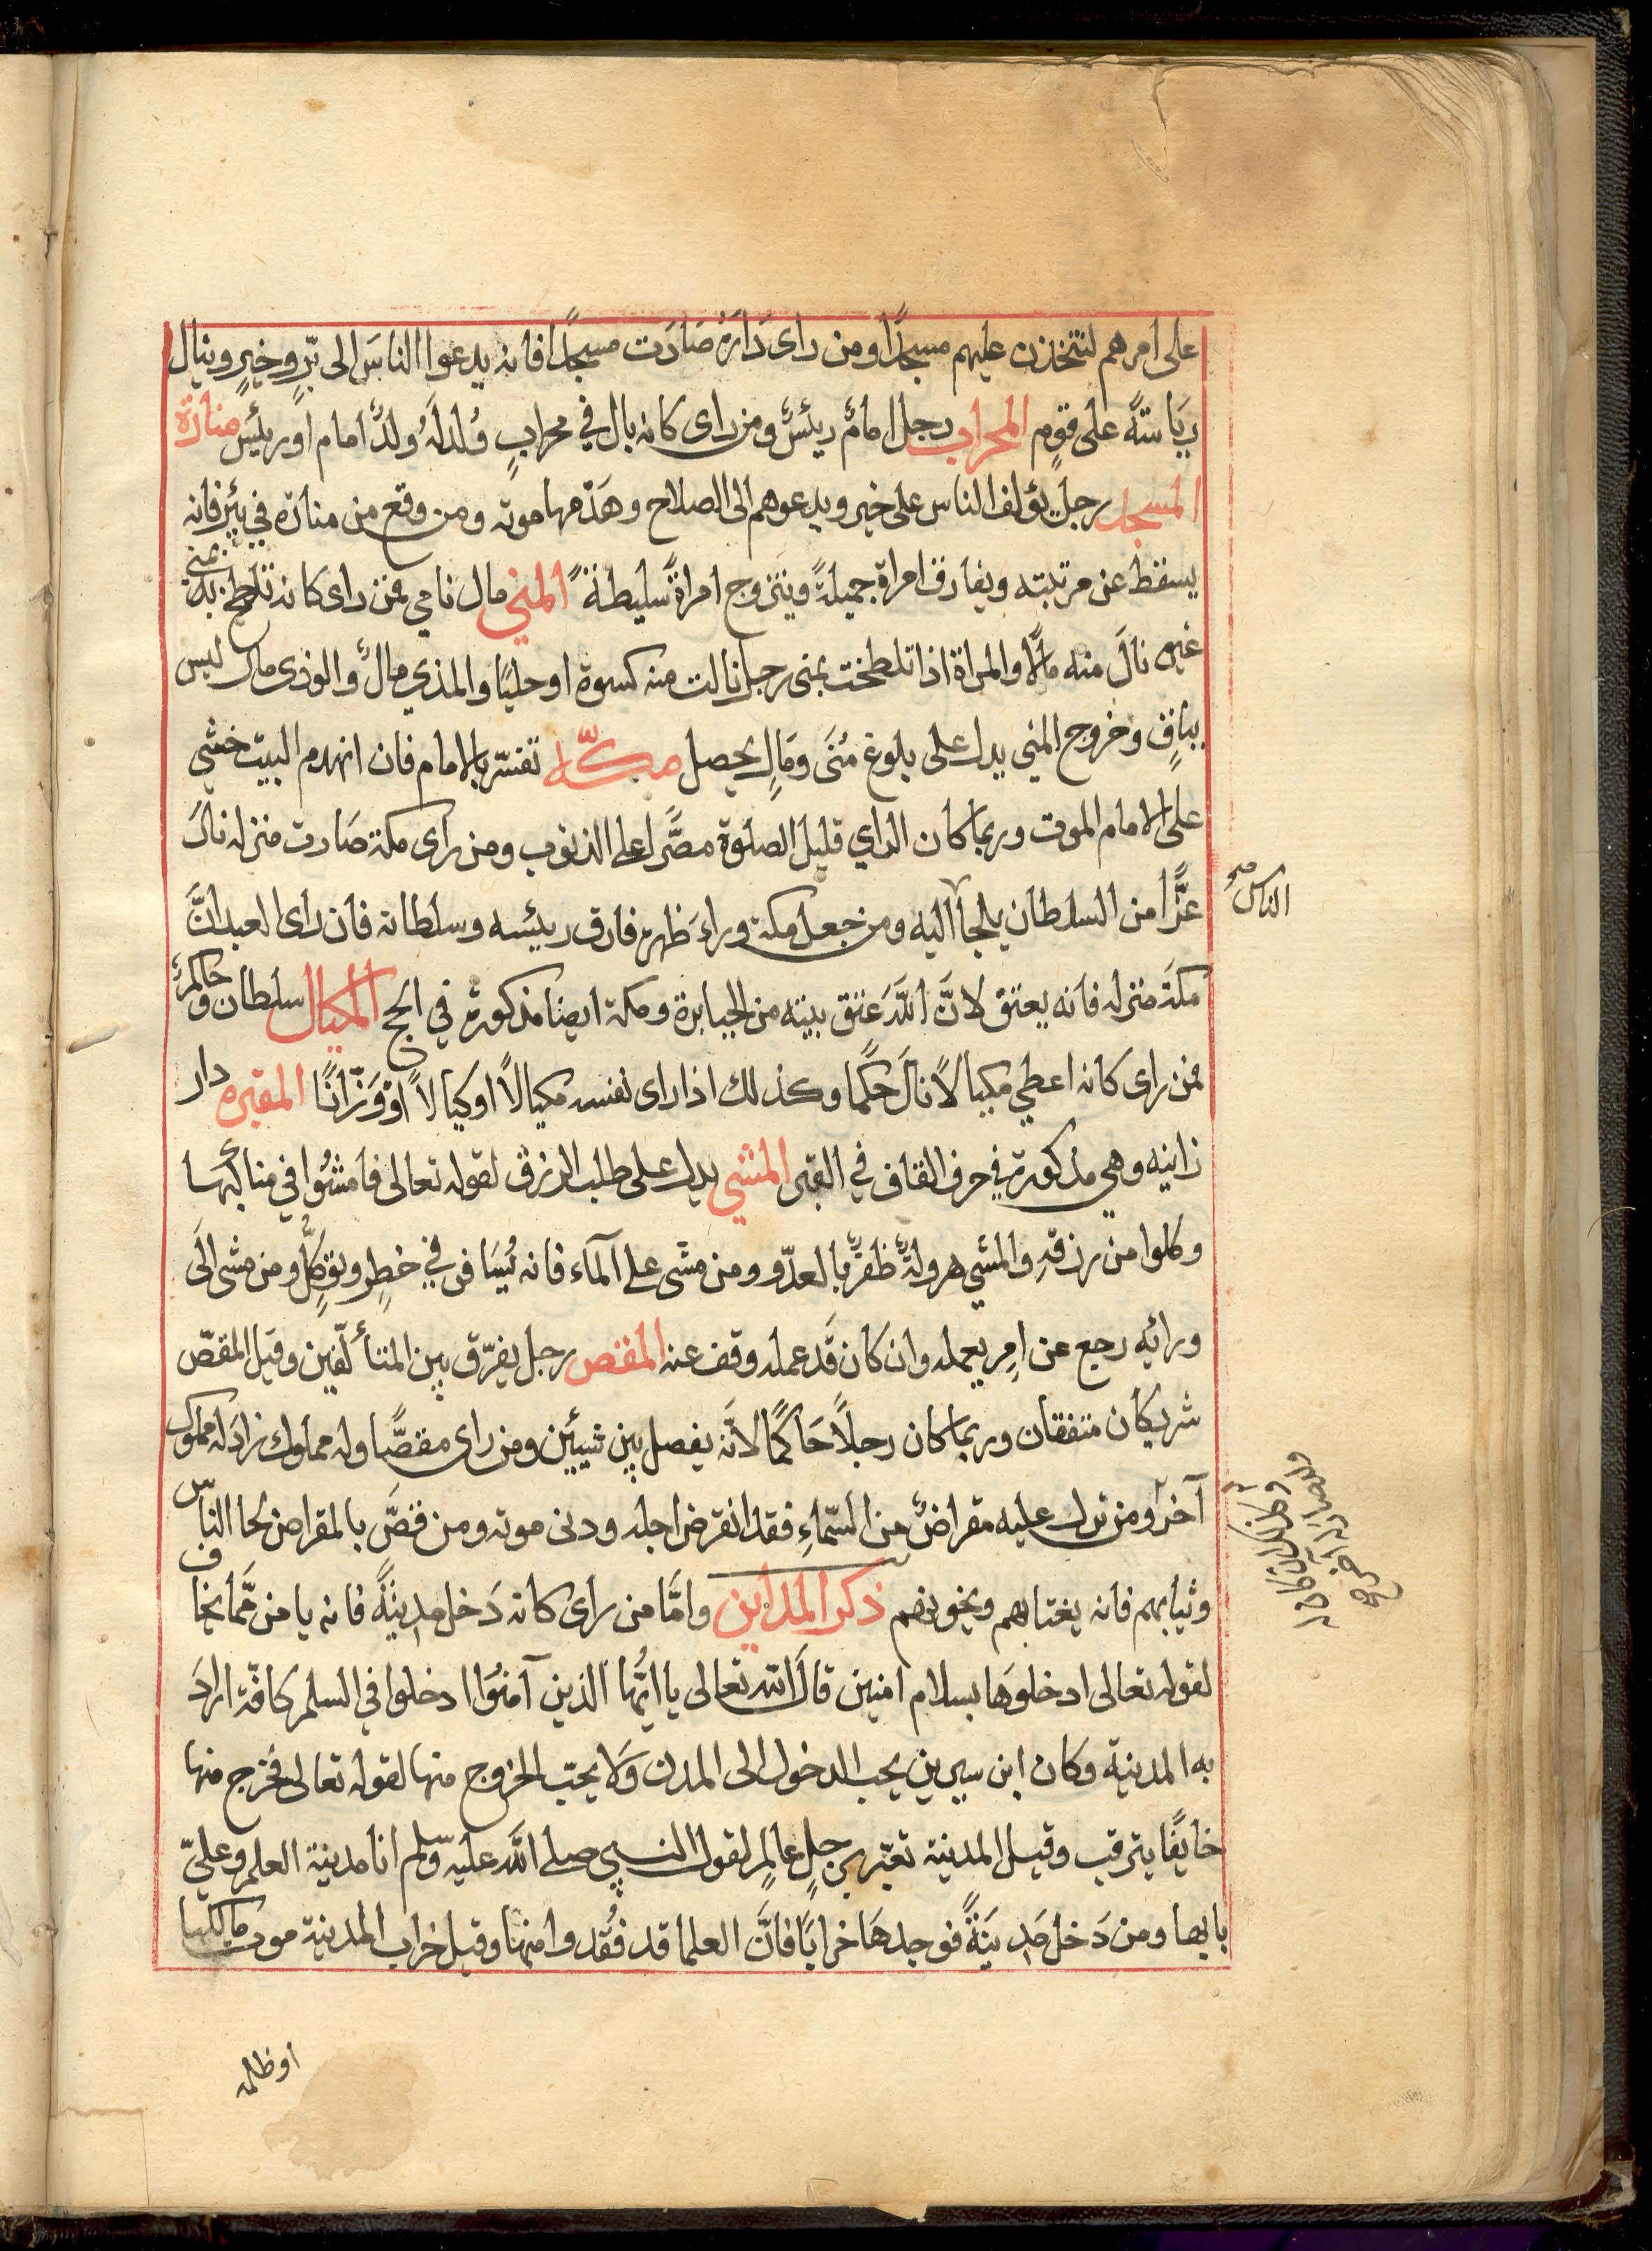 على امرهم لنتخذن عليهم مسجدًا ومن راى دَارَهُ صَارَت مسجدًا فانه يدعوا الناسَ الى برٍّ وخيرٍ وينال
رِيَاسَةً على قومٍ المحراب رجل امامٌ ريئسٌ ومن راى كانه بال في محرابٍ وُلدلَهُ ولدٌ امام او ريئس منارة
المسجد رجل يؤلف الناس على خير ويدعوهم الى الصلاح وهَدْمها موته ومن وقع من منارة في بئرٍ فانه
يسقط عن مرتبته ويفارق امراة جميلةً ويتزوج امراةً سليطةً المني مال نامي فمن راى كانه تلطخ بمني
غيره نالَ منه مالًا والمراة اذا تلطخت بمنى رجل نالت منه كسوة او حليًا والمذي مالٌ والوذى مال ليس
بباقٍ وخروج المني يدل على بلوغ مُنَى ومَالٍ يحصل مكّه تفسّر بالامام فان انهدم البيت خشي
على الامام الموت وربما كان الراي قليل الصلوة مصَّرا على الذنوب ومن راى مكة صَارت منزله نالَ
عزًّا من السلطان يلجا اليه ومن جعل مكة وراءَ ظهره فارق ريئسه وسلطانه فان راى العبد انَّ
الناس صح
مكةَ منزله فانه يعتق لانَّ اللّهَ عتق بيته من الجبابرة ومكة ايضا مذكورة في الحج المكيال سلطان وحاكمٌ
فمن راى كانه اعطي مكيالًا نالَ حكمًا وكذلك اذا راى نفسه مكيالًا او كيالًا اوْ وَزّانًا المقبره دار
زانيه وهي مذكورة في حرف القاف في القبر المشي يدل على طلب الرزق لقوله تعالى فامشُوا في مناكبها
وكلوا من رزقهِ والمشي هرولةً ظفرٌ بالعدّو ومن مشَى على الماء فانه يُسَافر في خطرٍ وتوكلٍّ ومن مشى الَى
ورائه رجع عن امرٍ يعمله وان كان قَد عمله وقف عنه المقص رجل يفرّق بين المتألّفين وقيل المقصّ
شريكان متفقان وربما كان رجلًا حَاكمًا لانّه يفصل بين شيئين ومن راى مقصًّا وله مملوك زادَ له مملوك
آخرٌ ومن ترك عليه مقراضٌ من السَّماءِ فقد انقرض اجله ودنى موته ومن قصَّ بالمقراض لحا الناس
وثيابهم فانه يغتابهم ويخونهم ذكر المداين وامَّا من راى كانه دَخل مدينةً فانه يامن ممَّا يخاف
لقوله تعالى ادخلوهَا بسلام امنين قالَ الله تعالى يا ايُّها الذين آمنُوا ادخلوا في السلم كافّة ارادَ
به المدينة وكان ابن سيرين يحب الدخول الى المدن وَلا يحبّ الخروج منها لقوله تعالى فخرج منها
خايفًا يترقب وقيل المدينة تعبّر برجلٍ عالمٍ لقول النبي صلى اللّه عليه وسّلم انا مدينة العلم وعليّ
بابها ومن دَخل مَدِينَةً فوجدهَا خرابًا فانَّ العلما قد فُقدوا منها وقيل خراب المدينة موت مالكها
او ظلمه